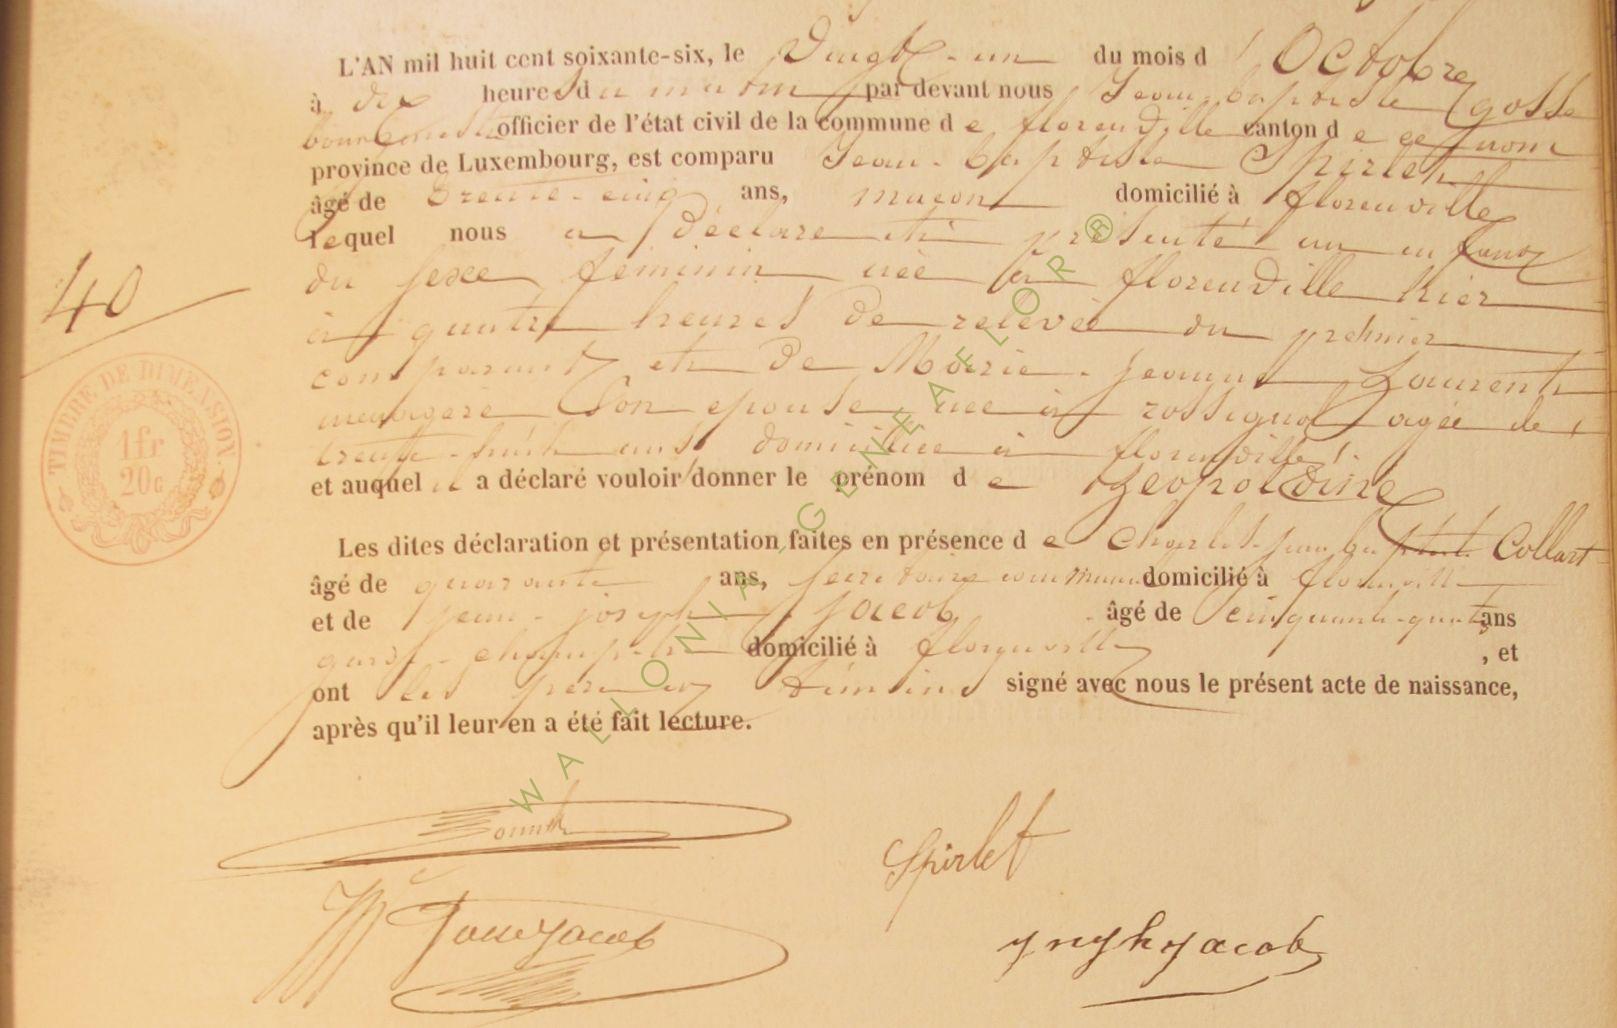 L'AN mil huit cent soixante-six, le Vingt-un du mois d'Octobre
à dix heures du matin par devant nous Jean-baptiste Gosse
bourgmestre officier de l'état civil de la commune de florenville canton de ce nom
province de Luxembourg, est comparu Jean-baptiste Spirlet
âgé de trente-cinq ans, maçon domicilié à florenville
lequel nous a déclaré et présenté un enfant
du sexe feminin née à florenville hier
à quatre heures de relevée du premier
comparant et de Marie-jeanne Laurent
menagère son epouse née à rossignol agée de
trente-huit ans domiciliée à florenville
et auquel il a déclaré vouloir donner le prénom de Léopoldine
Les dites déclaration et présentation faites en présence de Charles-jean-baptiste Collart
âgé de quarante ans, secretaire communal domicilié à florenville
et de jean-joseph jacob âgé de cinquante-quatre ans
garde-champetre domicilié à florenville , et
ont les temoins signé avec nous le présent acte de naissance,
après qu'il leur en a été fait lecture.
40
TIMBRE DE DIMENSION.
1fr
20c
WALLONIE-GENEAFLOR®
Spirlet
jacob